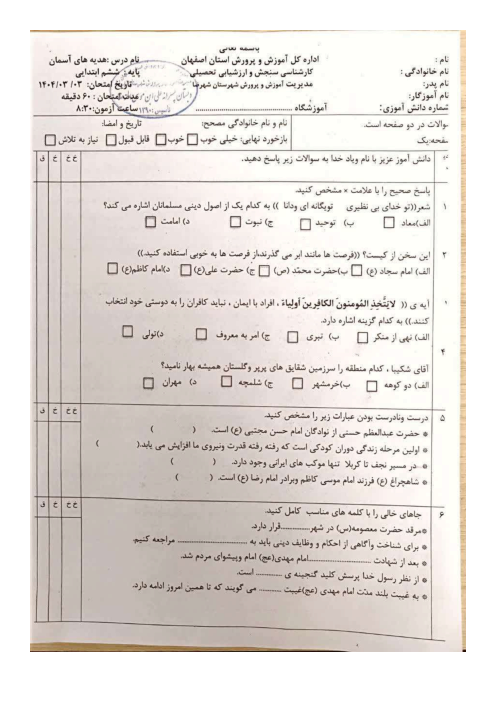 باسمه تعالی
نام : اداره کل آموزش و پرورش استان اصفهان نام درس :هدیه های آسمان
نام خانوادگی : کارشناسی سنجش و ارزشیابی تحصیلی پایه : ششم ابتدایی
نام پدر: مدیریت آموزش و پرورش شهرستان شهرضا تاریخ امتحان: ۰۳/ ۱۴۰۴/۰۳
نام آموزگار: مدت امتحان : ۶۰ دقیقه
شماره دانش آموزی: آموزشگاه .............................. ساعت آزمون:۸:۳۰
سوالات در دو صفحه است. نام و نام خانوادگی مصحح: تاریخ و امضا:
صفحه:یک بازخورد نهایی: خیلی خوب خوب قابل قبول نیاز به تلاش
دانش آموز عزیز با نام ویاد خدا به سوالات زیر پاسخ دهید. خ خ خ ق
پاسخ صحیح را با علامت × مشخص کنید.
۱ شعر((تو خدای بی نظیری تویگانه ای ودانا )) به کدام یک از اصول دینی مسلمانان اشاره می کند؟
الف)معاد ب) توحید ج) نبوت د) امامت
۲ این سخن از کیست؟ ((فرصت ها مانند ابر می گذرند،از فرصت ها به خوبی استفاده کنید.))
الف) امام سجاد (ع) ب)حضرت محمّد (ص) ج) حضرت علی(ع) د)امام کاظم(ع)
آیه ی (( لایَتَّخِذِ المُومِنونَ الکافِرینَ اَولِیاءَ ، افراد با ایمان ، نباید کافران را به دوستی خود انتخاب
کنند.)) به کدام گزینه اشاره دارد.
الف) نهی از منکر ب) تبری ج) امر به معروف د)تولی
۴
آقای شکیبا ، کدام منطقه را سرزمین شقایق های پرپر وگلستان همیشه بهار نامید؟
الف) دو کوهه ب)خرمشهر ج) شلمچه د) مهران
۵ درست ونادرست بودن عبارات زیر را مشخص کنید. خ خ خ ق
* حضرت عبدالعظم حسنی از نوادگان امام حسن مجتبی (ع) است. ( )
* اولین مرحله زندگی دوران کودکی است که رفته رفته قدرت ونیروی ما افزایش می یابد.( )
* در مسیر نجف تا کربلا تنها موکب های ایرانی وجود دارد. ( )
* شاهچراغ (ع) فرزند امام موسی کاظم وبرادر امام رضا (ع) است. ( )
۶ جاهای خالی را با کلمه های مناسب کامل کنید. خ خ خ ق
*مرقد حضرت معصومه(س) در شهر..............قرار دارد.
* برای شناخت وآگاهی از احکام و وظایف دینی باید به .............................. مراجعه کنیم.
* بعد از شهادت ....................امام مهدی(عج) امام وپیشوای مردم شد.
* از نظر رسول خدا پرسش کلید گنجینه ی .............. است.
* به غیبت بلند مدّت امام مهدی (عج)غیبت ........... می گویند که تا همین امروز ادامه دارد.